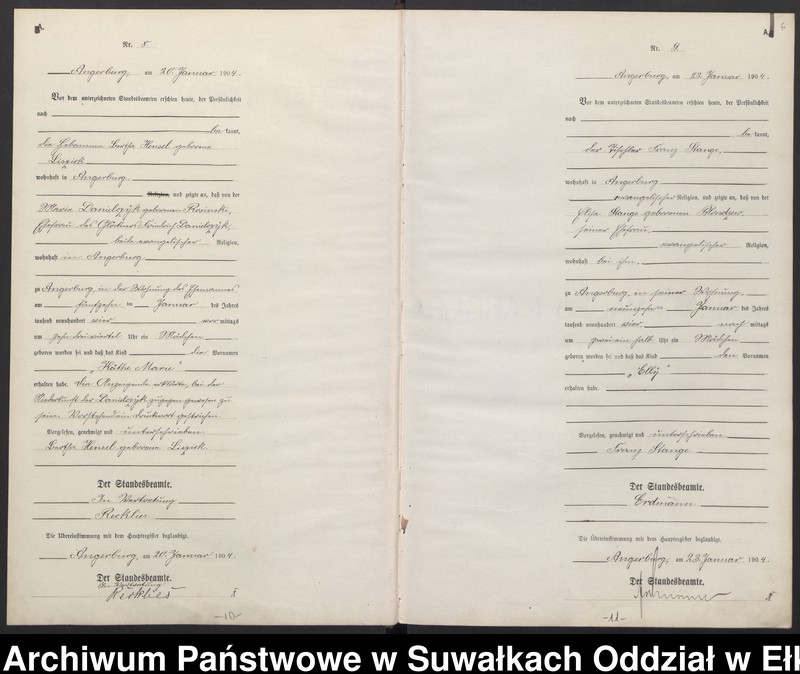 A.
Nr. 8.
Angerburg, am 20. Januar 1904.
Vor dem unterzeichneten Standesbeamten erschien heute, der Persönlichkeit
nach
be kannt,
die Hebamme Bertha Hensel geborene
wohnhaft in Angerburg.
Religion, und zeigte an, daß von der
Marie Danielczyk geborenen Rosinski,
Ehefrau des Danielczyk,
beide evangelischer Religion,
wohnhaft in Angerburg
zu Angerburg, in der Wohnung des Ehemannes
am fünfzehn ten Januar des Jahres
tausend neunhundert vier vor mittags
um zehn dreiviertel Uhr ein Mädchen
geboren worden sei und daß das Kind die Vornamen
"Käthe Marie"
erhalten habe. Die Anzeigende erklärte, bei der
Niederkunft der Danielczyk zugegen gewesen zu
sein. Vorstehend ein Druckwort gestrichen.
Vorgelesen, genehmigt und unterschrieben
Bertha Hensel geborene
Der Standesbeamte.
In Vertretung
Recklies
Die Übereinstimmung mit dem Hauptregister beglaubigt.
Angerburg, am 20. Januar 1904.
Der Standesbeamte.
In Vertretung
Recklies
-10-
6
A.
Nr. 9.
Angerburg, am 23. Januar 1904.
Vor dem unterzeichneten Standesbeamten erschien heute, der Persönlichkeit
nach
be kannt,
der Tischler Franz Stange,
wohnhaft in Angerburg
evangelischer Religion, und zeigte an, daß von der
Stange geborenen
seiner Ehefrau
evangelischer Religion,
wohnhaft bei ihm.
zu Angerburg, in seiner Wohnung,
am neunzehn ten Januar des Jahres
tausend neunhundert vier nach mittags
um Uhr ein Mädchen
geboren worden sei und daß das Kind den Vornamen
"Elly"
erhalten habe.
Vorgelesen, genehmigt und unterschrieben
Franz Stange
Der Standesbeamte.
Erdmann
Die Übereinstimmung mit dem Hauptregister beglaubigt.
Angerburg, am 23. Januar 1904.
Der Standesbeamte.
Erdmann
-11-
Archiwum Państwowe w Suwałkach Oddział w Ełk